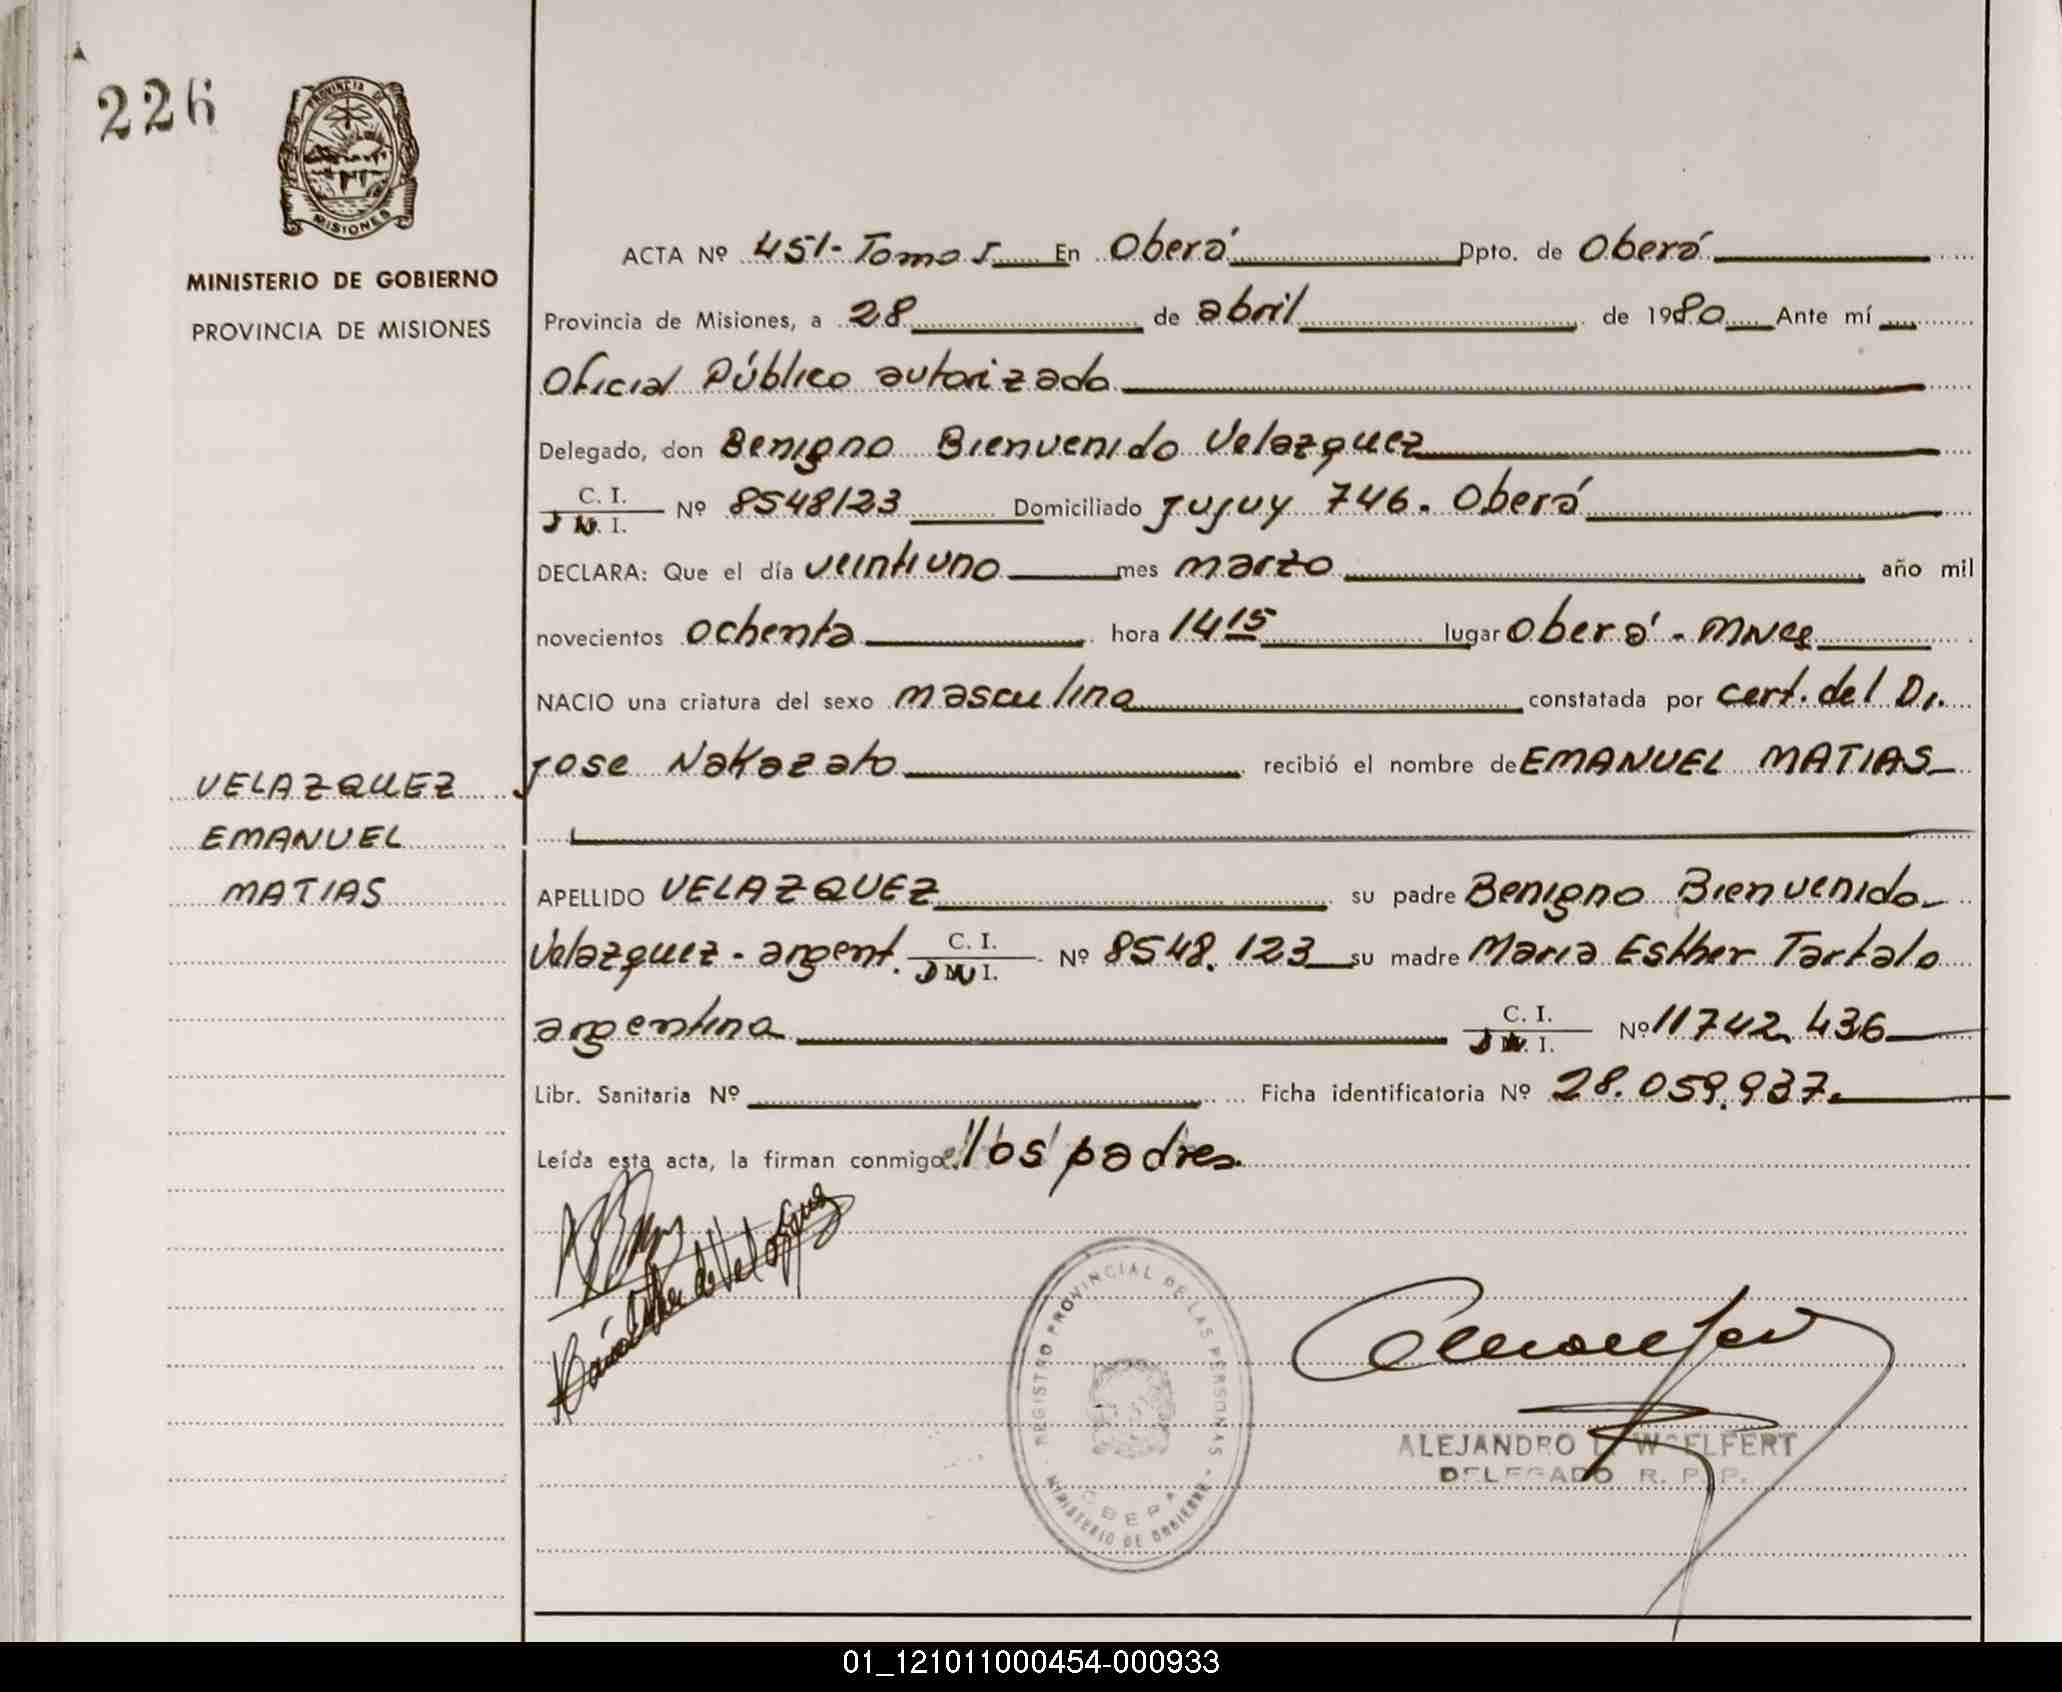 226
PROVINCIA DE
MISIONES
MINISTERIO DE GOBIERNO
PROVINCIA DE MISIONES
VELAZQUEZ
EMANUEL
MATIAS
ACTA Nº 451- Tomo I En Oberá Dpto. de Oberá
Provincia de Misiones, a 28 de abril de 1980 Ante mí
Oficial Público autorizado
Delegado, don Benigno Bienvenido Velazquez
C. I.
D N. I. Nº 8548123 Domiciliado Jujuy 746. Oberá
DECLARA: Que el día veintiuno mes marzo año mil
novecientos ochenta hora 14 15 lugar Oberá - Mnes
NACIO una criatura del sexo masculino constatada por cert. del Dr.
Jose Nakazato recibió el nombre de EMANUEL MATIAS
APELLIDO VELAZQUEZ su padre Benigno Bienvenido
Velazquez - argent. C. I. D N I. Nº 8548.123 su madre Maria Esther Tartalo
argentina C. I. D N. I. Nº 11742.436
Libr. Sanitaria Nº Ficha identificatoria Nº 28.059.937.
Leída esta acta, la firman conmigo los padres
REGISTRO PROVINCIAL DE LAS PERSONAS
OBERA
MINISTERIO DE GOBIERNO
ALEJANDRO WOELFERT
DELEGADO R. P. P.
01_121011000454-000933